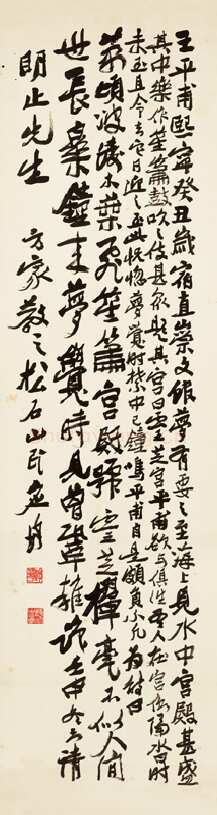 王平甫熙寧癸丑歲宿直崇文館夢有要之至海上見水中宮殿甚盛
其中樂作笙簫鼓吹之伎甚眾題其宮曰靈芝宮平甫欲與俱往有人在宮側隔水曰時
未至且令去它日迎之至此恍惚夢覺時禁中已鐘鳴平甫自是頗負不凡為詩曰
萬頃波濤木葉飛笙簫宮殿號靈芝揮毫不似人間
世長樂鐘來夢覺時見曾 壬申冬 請
朗止先生
方家教之松石山民